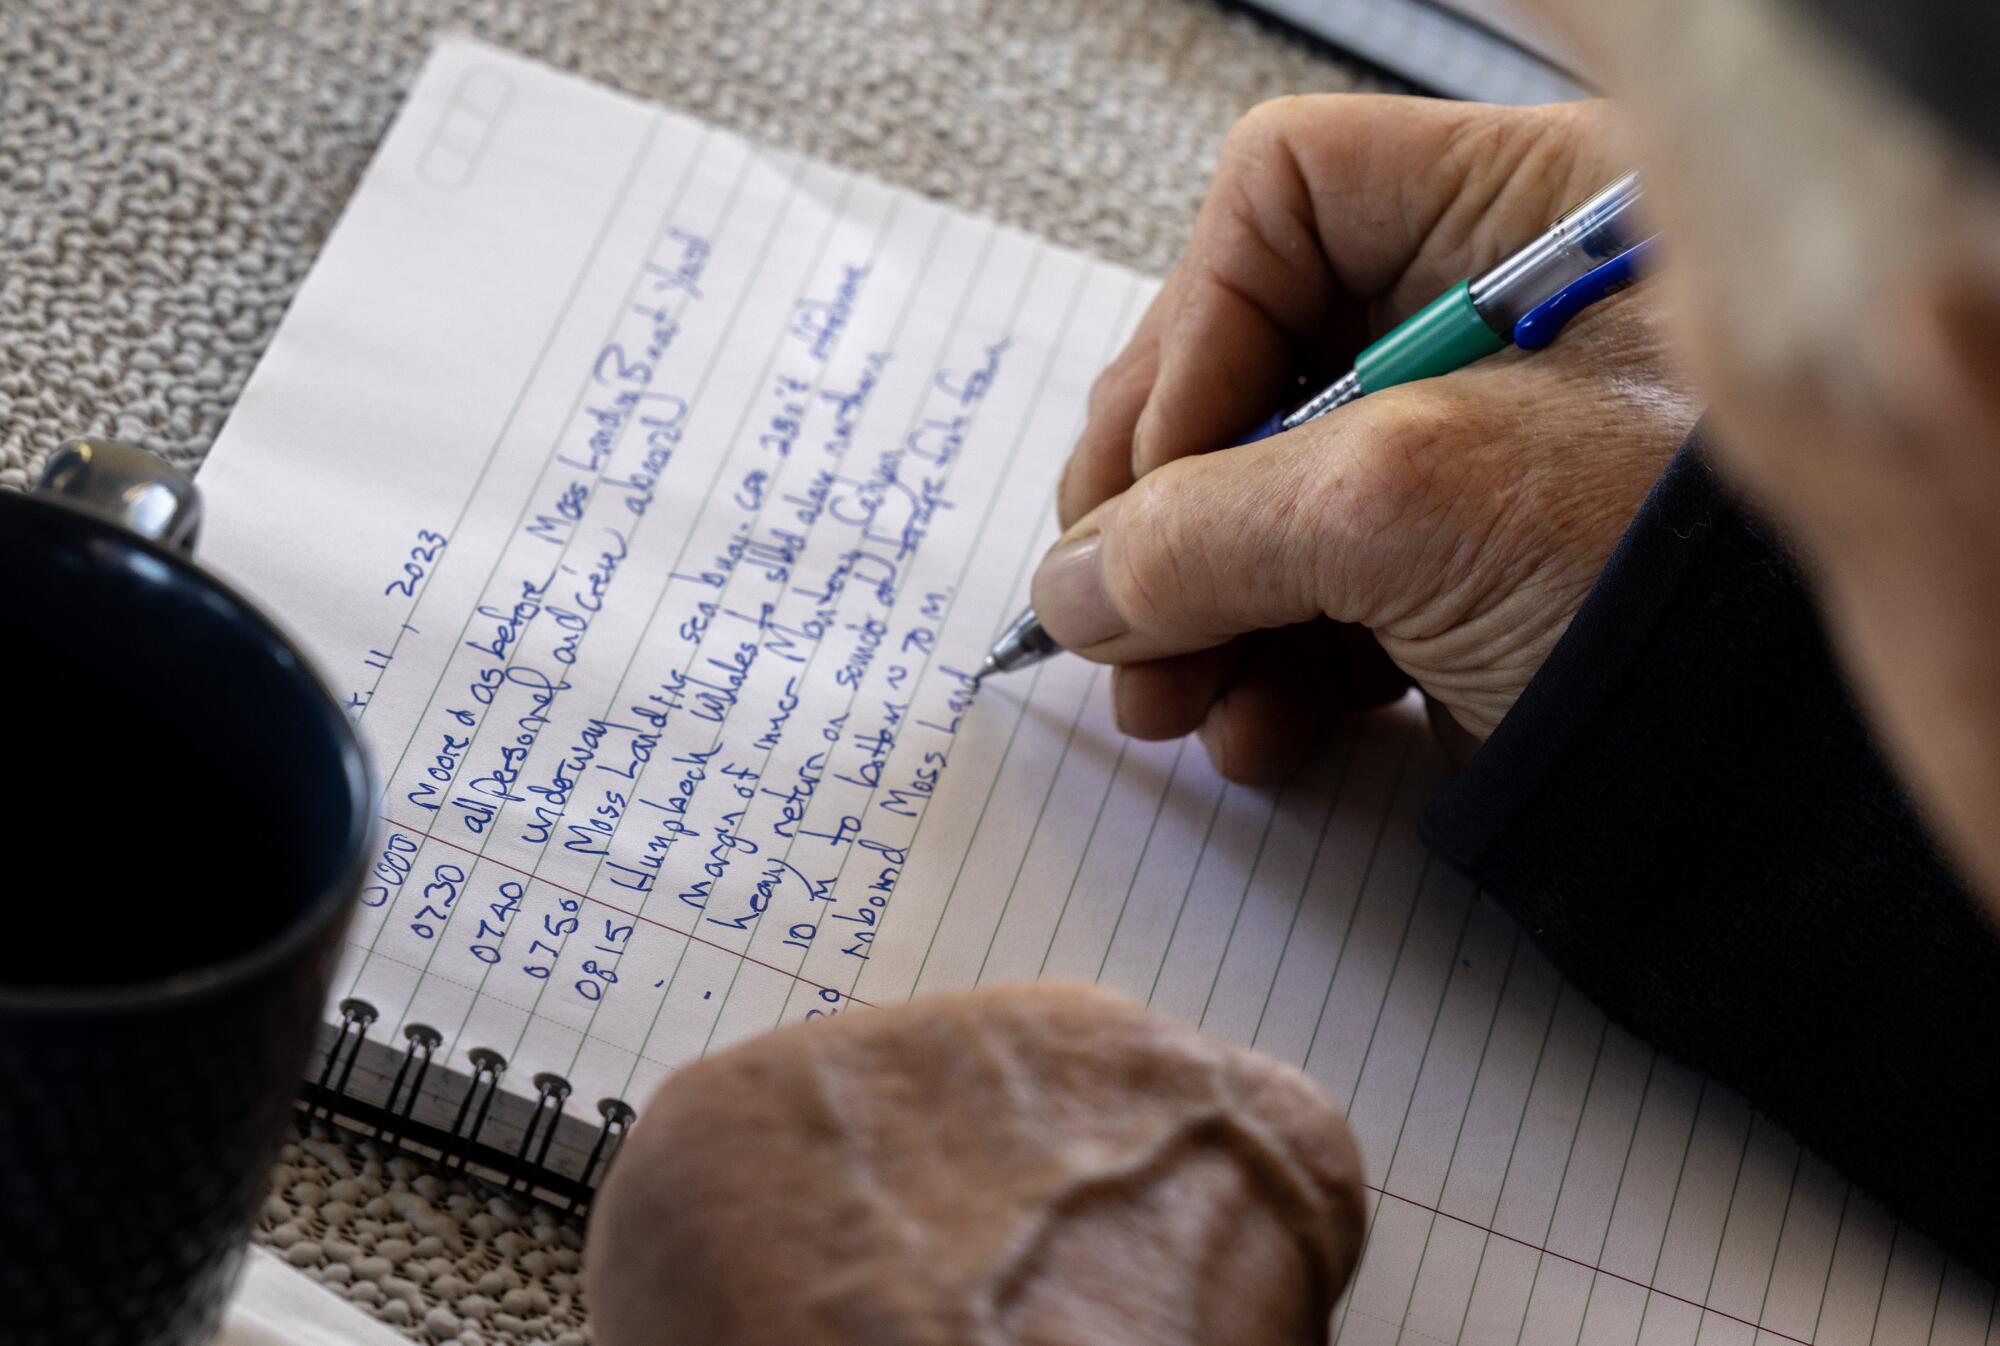 11, 2023
Moored as before, Moss Landing Boat Yard
0730 all personnel and crew aboard
0740 underway
0750 Moss Landing sea buoy. c/o 280°t
0815 Humpback whales to stbd along northern
margin of inner Monterey Canyon
heavy return on sounder forage fish from
10 M to bottom ~ 70 M.
20 inbound Moss Land